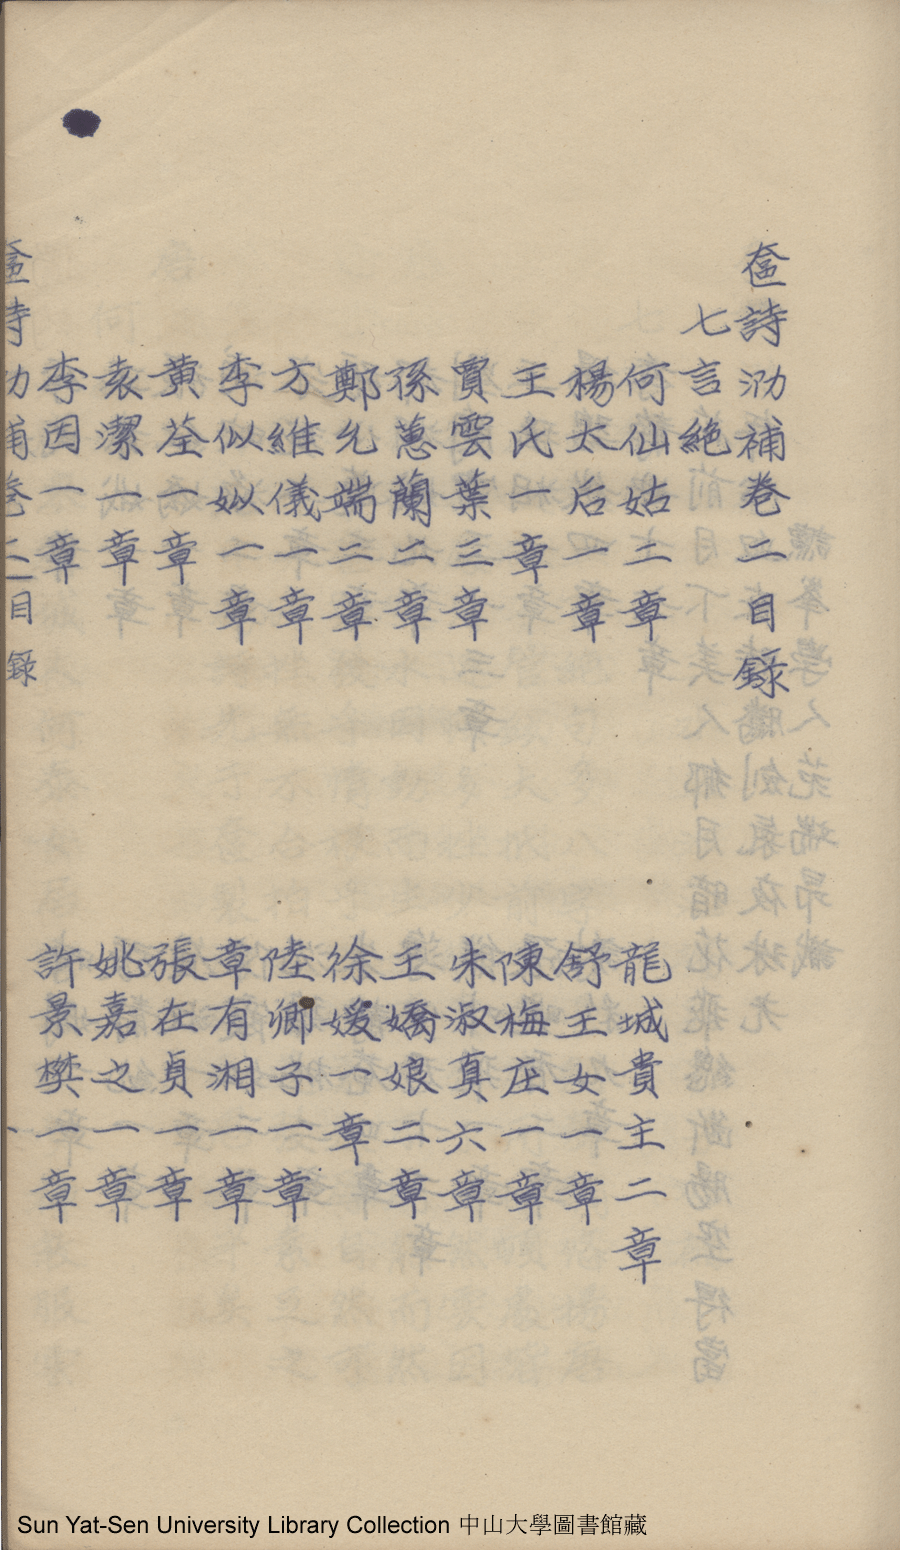 奩詩泐補卷二目錄
七言絕
何仙姑二章
龍城貴主二章
楊太后一章
舒王女一章
王氏一章
陳梅庄一章
賈雲葉三章
朱淑真六章
孫蕙蘭二章
王嬌娘二章
鄭允端二章
徐媛一章
方維儀一章
陸卿子一章
李似姒一章
章有湘一章
黃荃一章
張在貞一章
袁潔一章
姚嘉之一章
李因一章
許景樊一章
奩詩泐補卷二目錄
Sun Yat-Sen University Library Collection 中山大學圖書館藏